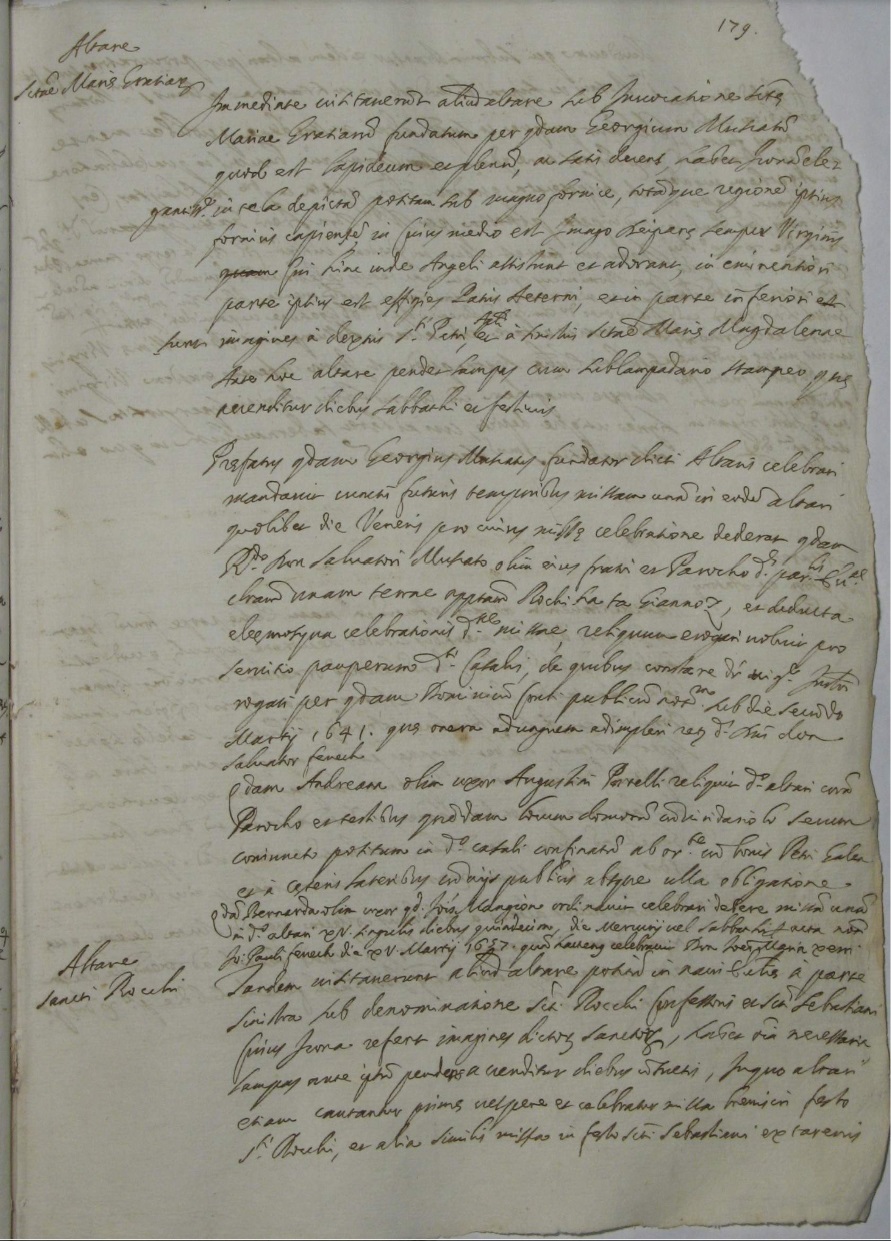 179.
Altare
Sctae Mariae Gratiarum
Immediate visitaverunt aliud altare sub Invocatione sctae
Mariae Gratiarum fundatum per qdam Georgium Muscatum
quod est lapideum et plenum, ac satis decens, habet Iconam ele
gantem in tela depictam positam sub magno fornice, totamque regionem ipsius
fornicis capientem in cuius medio est Imago Deiparae semper Virginis
cui hinc inde Angeli assistunt et adorant, in eminentiori
parte ipsius est effigies Patris Aeterni, et in parte inferiori
sunt imagines à dextris Sti Petri, Apli et à sinistris sctae Mariae Magdalenae
Ante hoc altare pendet lampas cum sublampadario stampeo quae
accenditur diebus sabbathi et festivis
Praefatus qdam Georgius Muscatus fundator dicti Altaris celebrari
mandavit cunctis futuris temporibus missam unam in eodem altari
quolibet die Veneris pro cuius missae celebratione dederat qdam
Rdo Don Salvatori Muscato olim eius fratri et Parocho
clausuram unam terrae appellatam Rochi ta Gianno, et deducta
eleemosyna celebrationis dictae missae, reliquum erogari voluit pro
servitio pauperum di Casalis, de quibus constare dr vig.
rogati per qdam Dominicum publicum notm sub die secundo
Martij 1641. quae onera adunguem adimpleri don
Salvator fenech
Qdam Andreana olim uxor Augustini Portelli reliquit do altari coram
Parocho et testibus quoddam locum domorum cum viridariolo secum
coniuncto positum in do casali confinatum ab orte cum bonis Petri Galea
et à caeteris lateribus cum vijs publicis absque ulla obligatione.
Qdam Bernarda olim uxor qd. Jois Mangion ordinavit celebrari debere missam unam
in do altari xv. singulis diebus quindecim, die Mercurij vel sabbathi
Jo: Pauli fenech die xv Martij 1637.
Altare
Sancti Rocchi
Tandem visitaverunt aliud altare positum in navi à parte
sinistra sub denominatione Sti Rocchi Confessoris et scti Sebastiani
cuius Icona refert imagines dictorum Sanctorum, habet oia necessaria
lampas ante ipsum pendens accenditur diebus consuetis, In quo altari
etiam cantantur primae vesperae et celebratur missa in festo
Sti Rocchi, et alia similis missa in festo scti Sebastiani